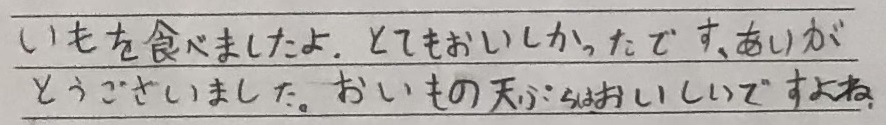 いもを食べましたよ。とてもおいしかったです、ありが
とうございました。おいもの天ぷらはおいしいですよね。